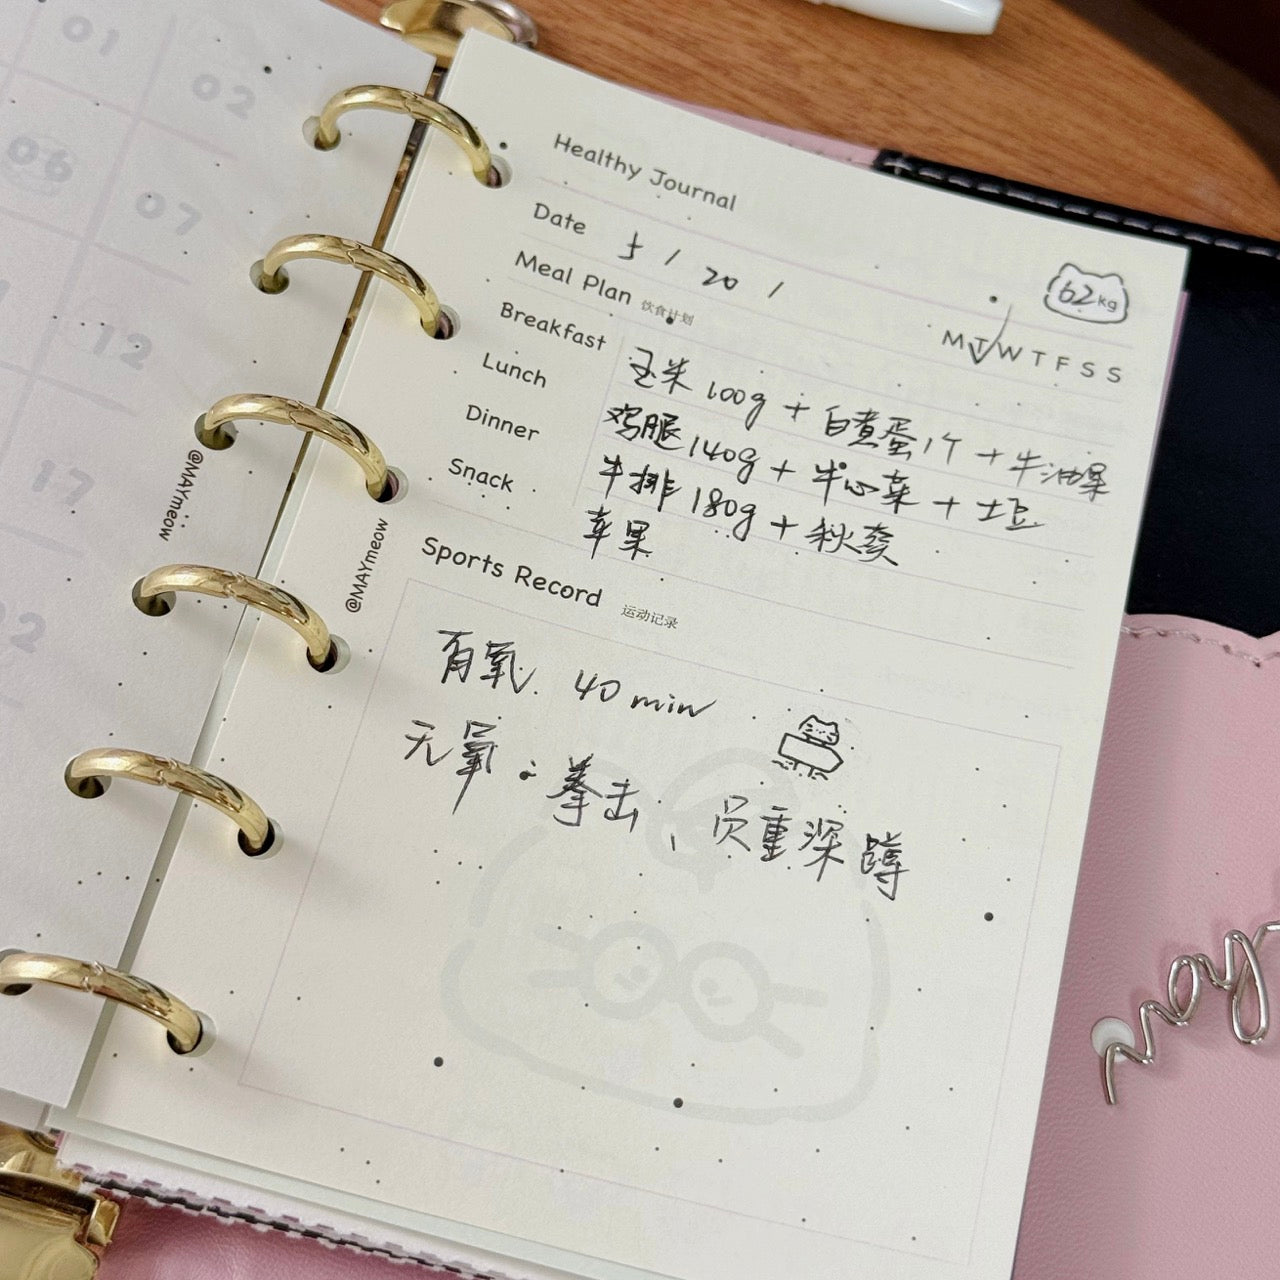 01
02
06
07
12
17
@MAYmeow
Healthy Journal
Date 5 / 20 /
62kg
Meal Plan 饮食计划
M T W T F S S
Breakfast 玉米 100g + 白煮蛋1个 + 牛油果
Lunch 鸡腿140g + 牛心菜 + 土豆
Dinner 牛排 180g + 秋葵
Snack 苹果
@MAYmeow
Sports Record 运动记录
有氧. 40 min
无氧:拳击、负重深蹲